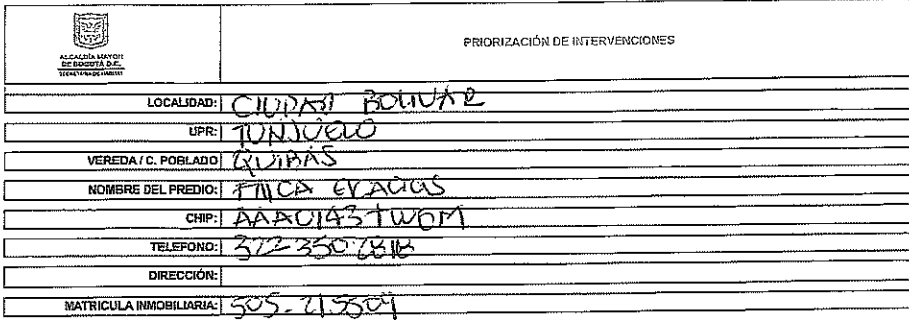 ALCALDÍA MAYOR
DE BOGOTÁ D.C.
SECRETARÍA DE HÁBITAT
PRIORIZACIÓN DE INTERVENCIONES
LOCALIDAD: CIUDAD BOLIVAR
UPR: TUNJUELO
VEREDA / C. POBLADO QUIBÁS
NOMBRE DEL PREDIO: FINCA
CHIP:
TELEFONO: 322 350
DIRECCIÓN:
MATRICULA INMOBILIARIA: 50S-